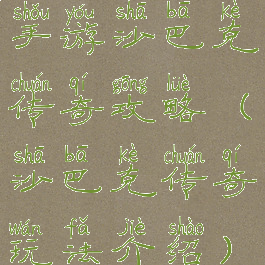 shǒu yóu shā bā kè
手游沙巴克
chuán qí gōng lüè
传奇攻略（
shā bā kè chuán qí
沙巴克传奇
wán fǎ jiè shào
玩法介绍）